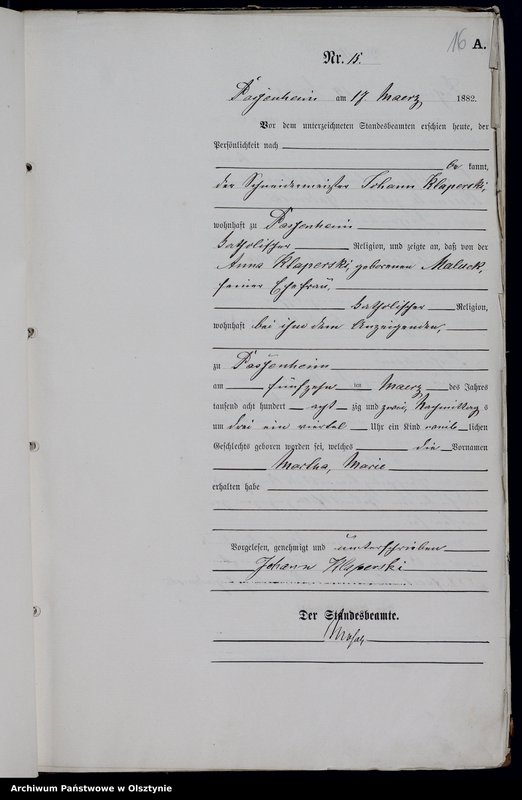 16 A.
Nr. 15.
Passenheim am 17. Maerz 1882.
Vor dem unterzeichneten Standesbeamten erschien heute, der
Persönlichkeit nach
be kannt,
der Schneidermeister Johann Klaperski,
wohnhaft zu Passenheim
katholischer Religion, und zeigte an, daß von der
Anna Klaperski, geborenen
seiner Ehefrau,
katholischer Religion,
wohnhaft bei ihm dem Anzeigenden,
zu Passenheim
am fünfzehn ten Maerz des Jahres
tausend acht hundert acht zig und zwei, Nachmittag s
um drei ein viertel Uhr ein Kind weib lichen
Geschlechts geboren worden sei, welches die Vornamen
Martha, Marie
erhalten habe
Vorgelesen, genehmigt und unterschrieben
Johann Klaperski
Der Standesbeamte.
Archiwum Państwowe w Olsztynie